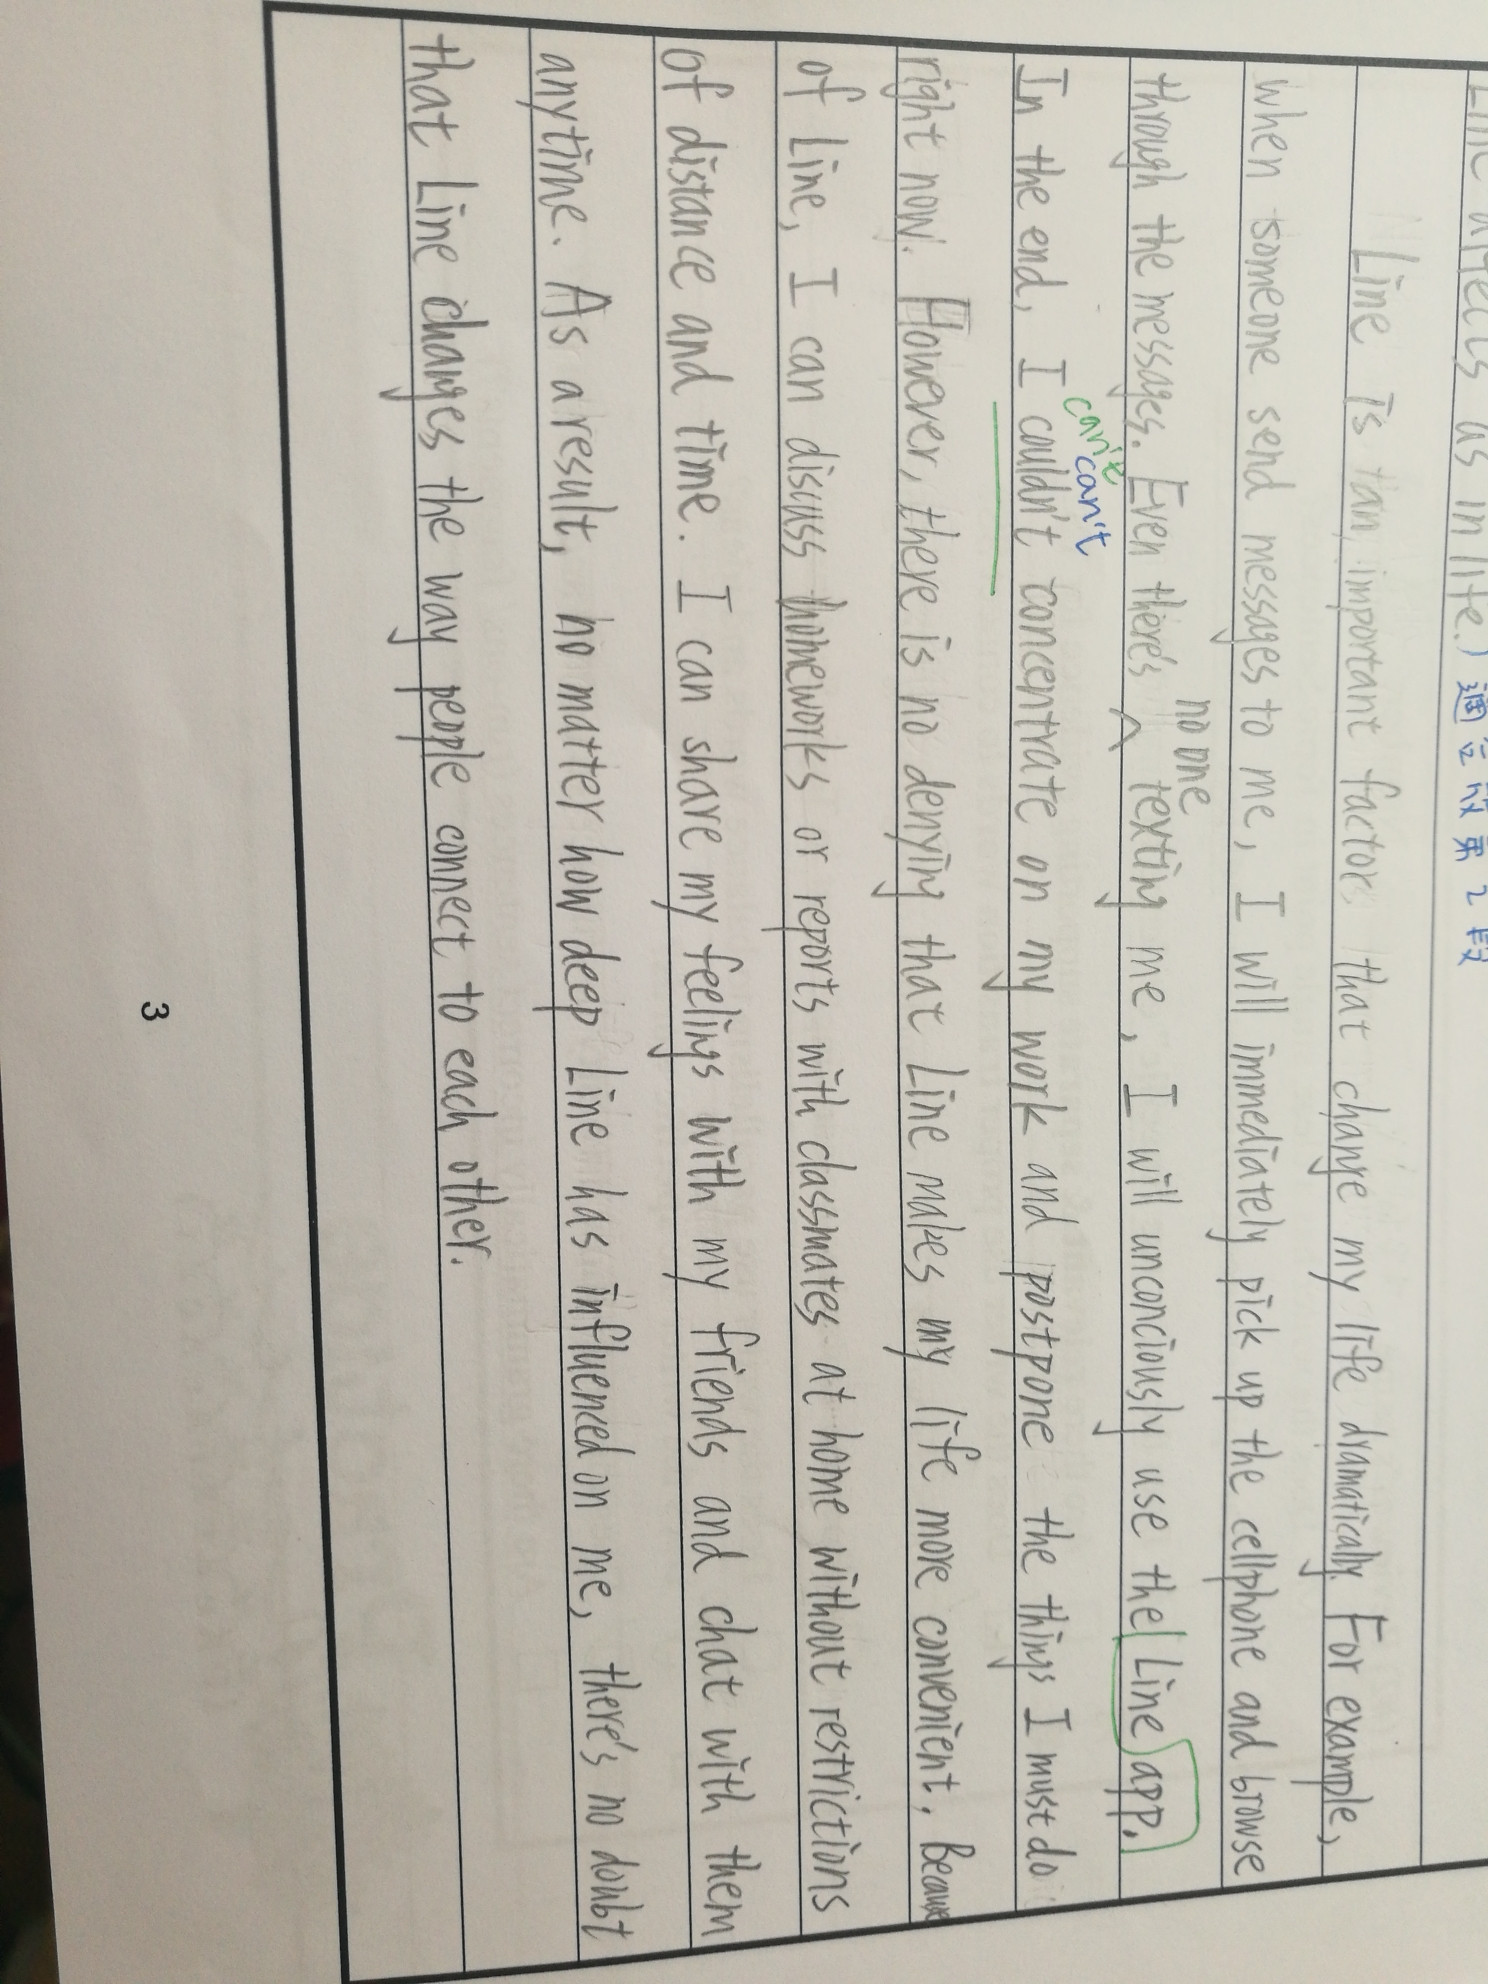 Line affects us in life.) 適合放第2段
Line is an important factor that change my life dramatically. For example,
when someone send messages to me, I will immediately pick up the cellphone and browse
no one
through the messages. Even there's ^ texting me, I will unconciously use the Line app.
can't can't
In the end, I couldn't concentrate on my work and postpone the things I must do
right now. However, there is no denying that Line makes my life more convenient. Because
of Line, I can discuss homeworks or reports with classmates at home without restrictions
of distance and time. I can share my feelings with my friends and chat with them
anytime. As a result, no matter how deep Line has influenced on me, there's no doubt
that Line changes the way people connect to each other.
3